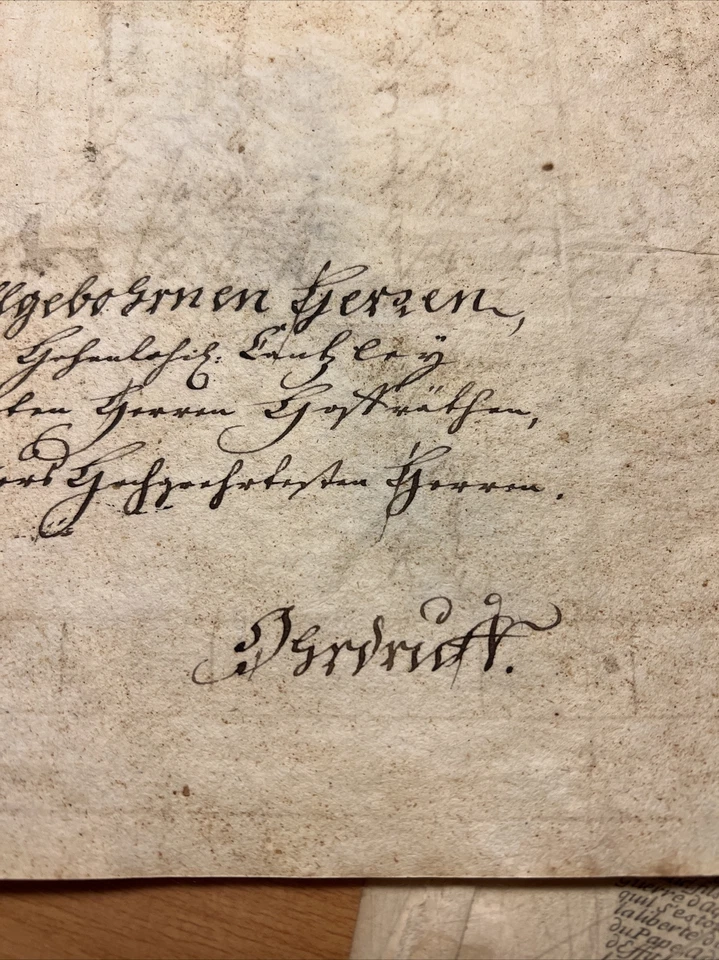 llgebohrnen Herren,
Hohenlohis: Cantzley
ten Herren Hoffräthen,
ers Hochgeehrtesten Herren.
Ohrdruff.
guerre d'
qu'il s'esto
la liberté d
du Pape